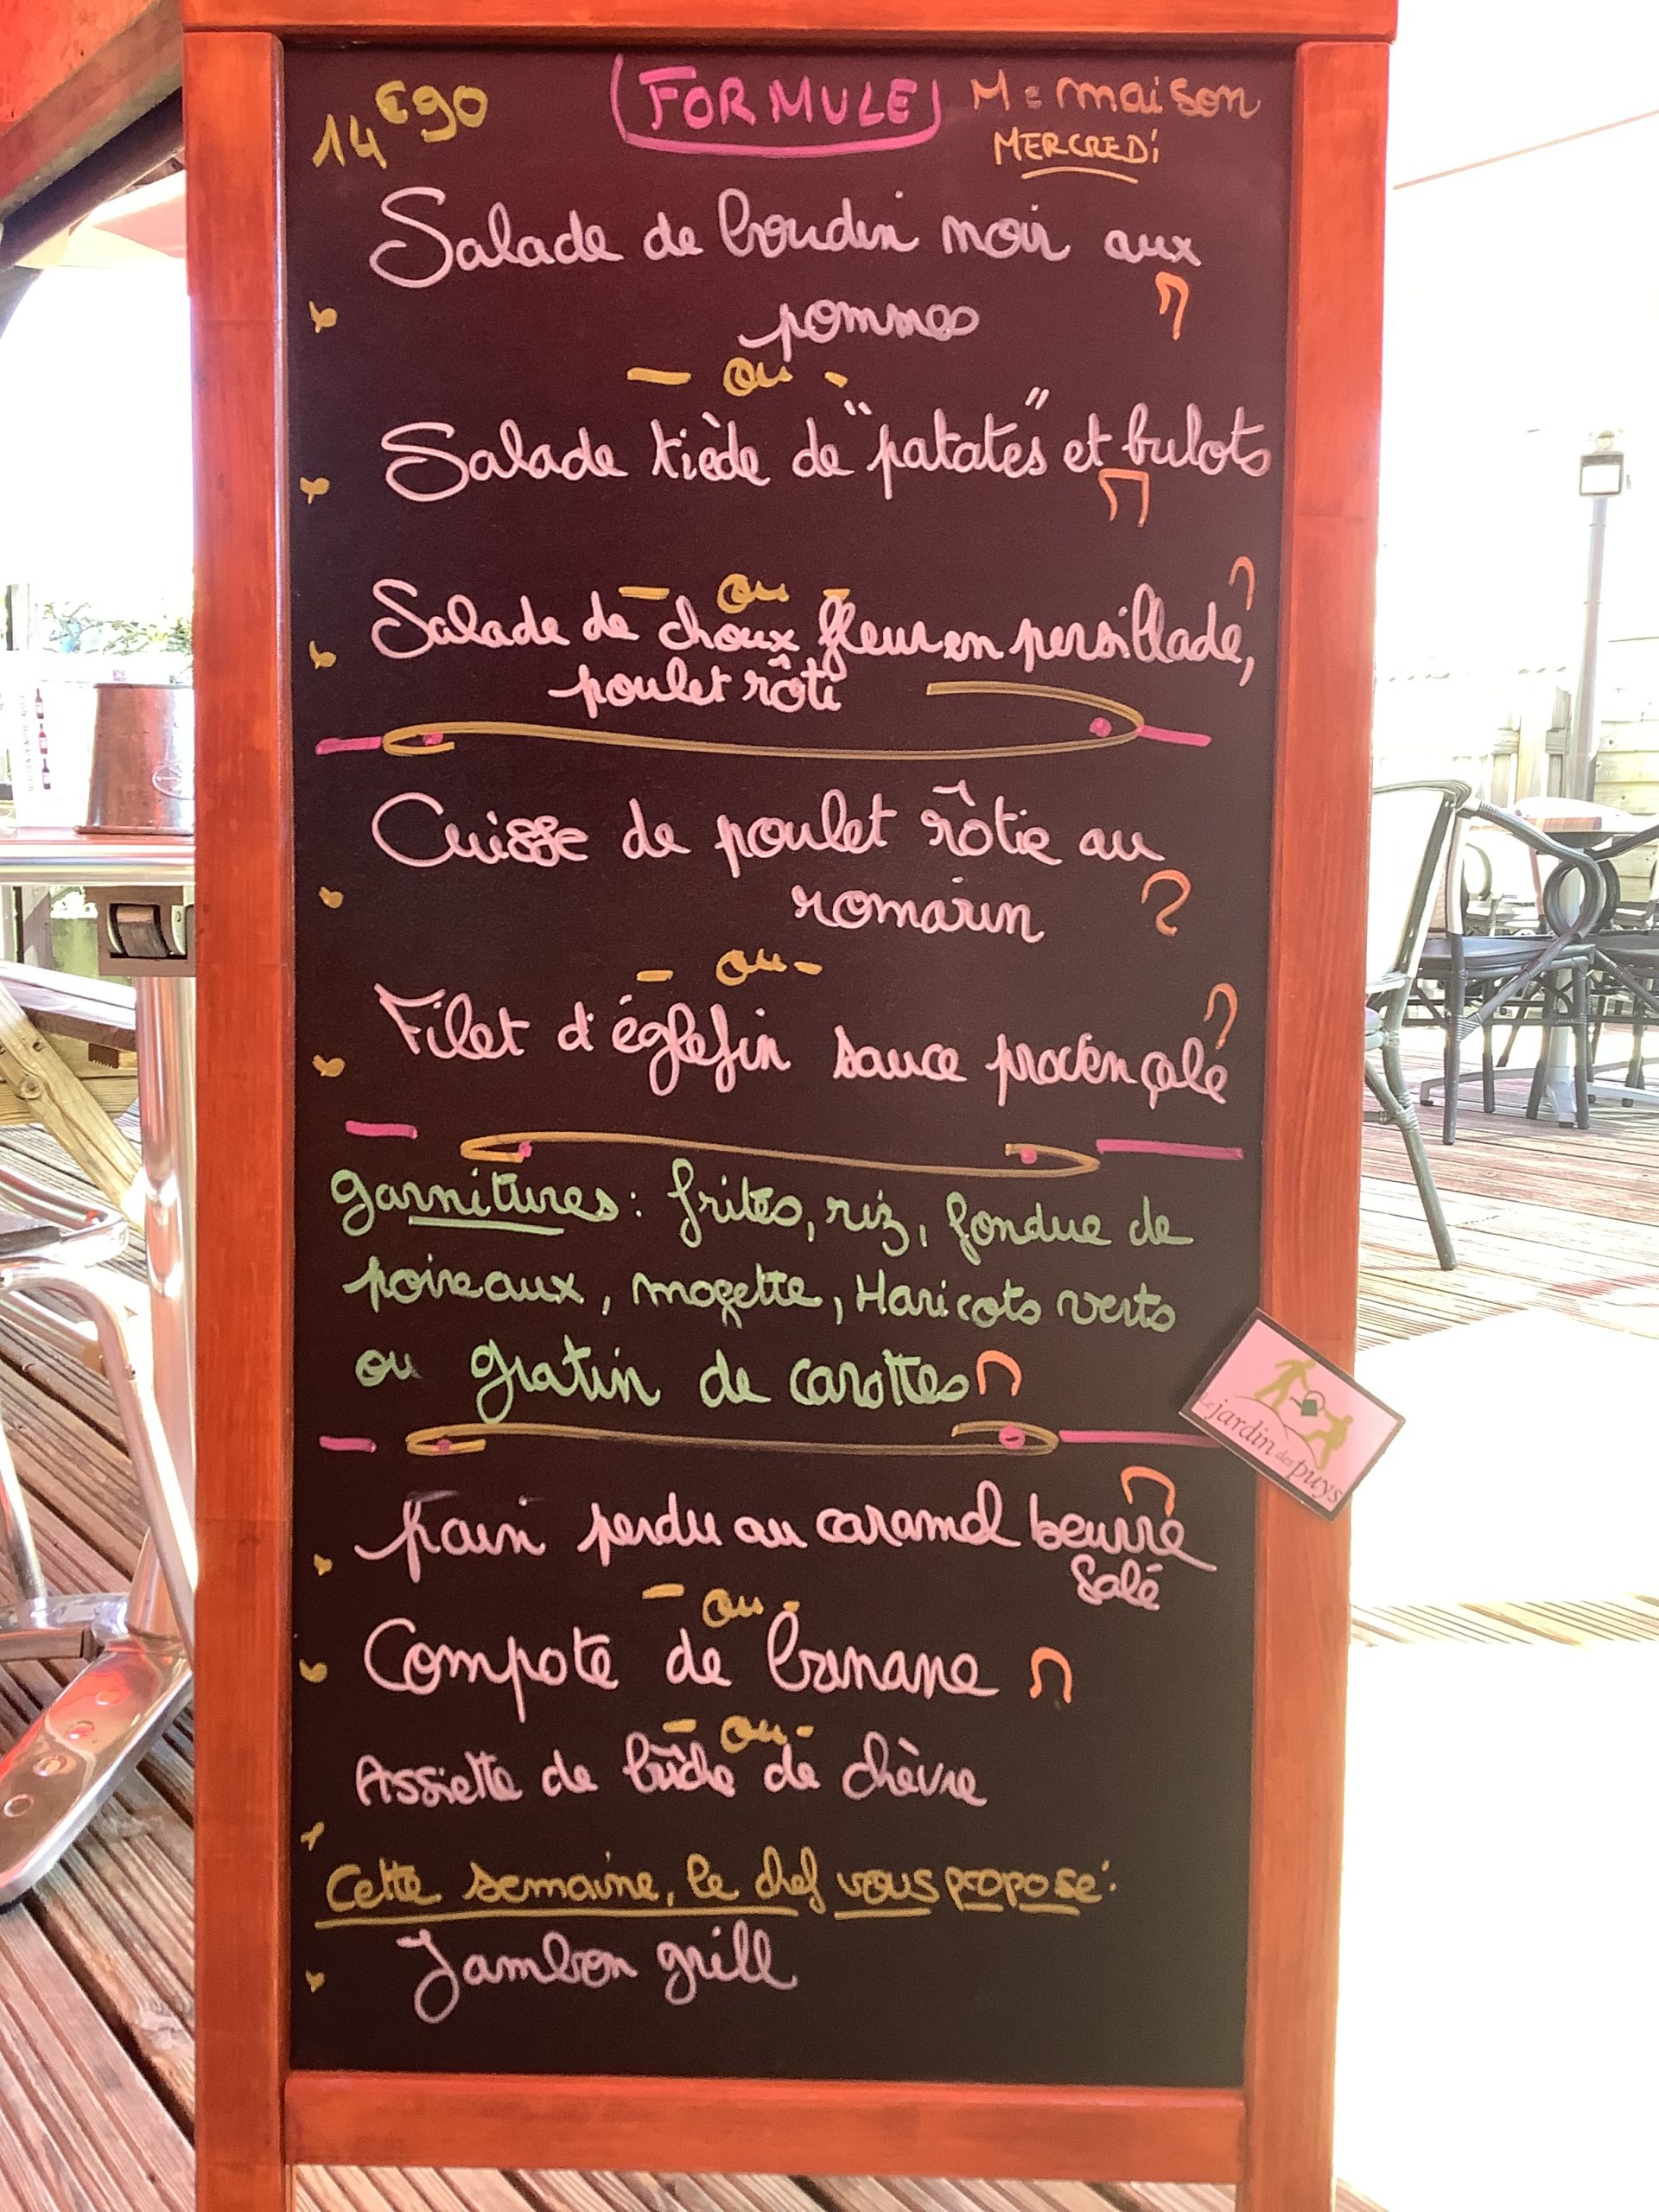 14€90 FORMULE M = maison
MERCREDI
Salade de boudin noir aux
pommes M
- ou -
Salade tiède de "patates" et bulots
M
- ou - M
Salade de choux fleur en persillade,
poulet rôti
Cuisse de poulet rôtie au
romarin M
- ou -
M
Filet d'églefin sauce provençale
garnitures : frites, riz, fondue de
poireaux, mogette, Haricots verts
ou gratin de carottes M
M
Pain perdu au caramel beurre
Salé
- ou -
Compote de banane M
- ou -
Assiette de bûche de chèvre
Cette semaine, le chef vous propose :
Jambon grill
Le jardin des puys